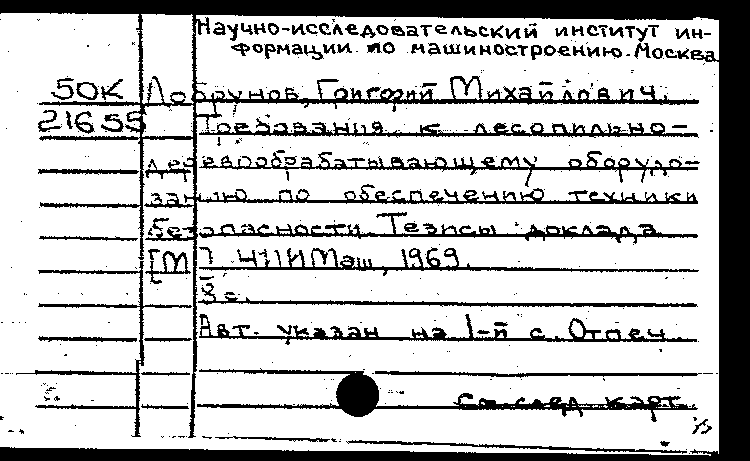 Научно-исследовательский институт ин-
формации по машиностроению. Москва
50К Лобрунов, Григорий Михайлович.
21655 Требования к лесопильно-
деревообрабатывающему оборудо-
ванию по обеспечению техники
безопасности. Тезисы доклада
[М.] НИИМаш, 1969.
8 с.
Авт. указан на 1-й с. Отпеч.
См. след карт.